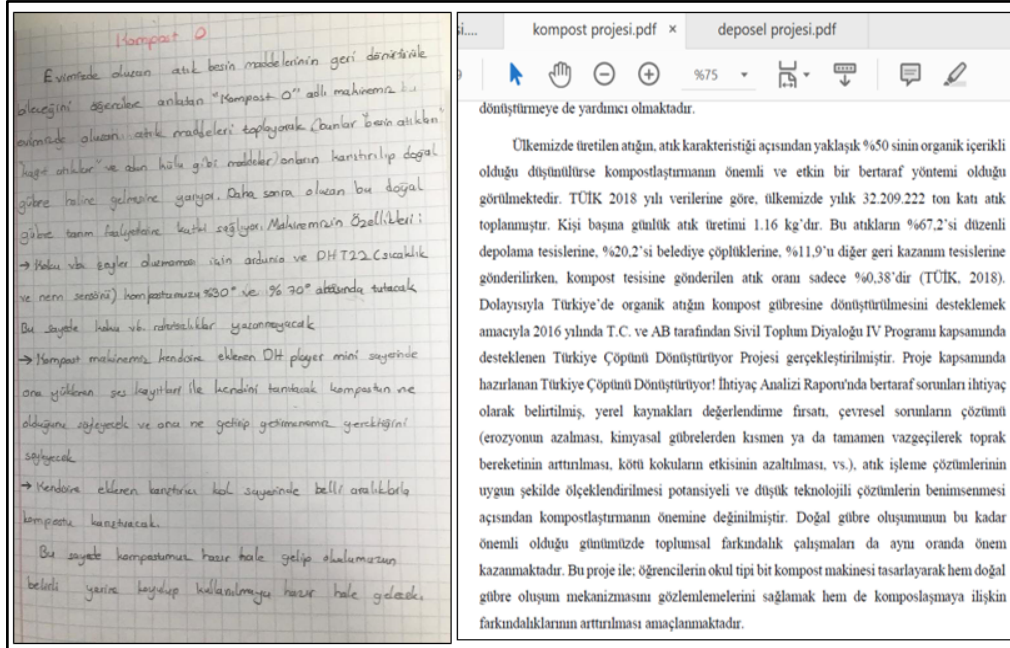 Kompost O
Evimizde oluşan atık besin maddelerinin geri dönüştürüle
bileceğini öğrencilere anlatan "Kompost O" adlı makinemiz
evimizde oluşan atık maddeleri toplayarak (bunlar besin atıkları
kağıt atıklar ve odun külü gibi maddeler) onların karıştırılıp doğal
gübre haline gelmesine yarıyor. Daha sonra oluşan bu doğal
gübre tarım faaliyetlerine katkı sağlıyor. Makinemizin Özellikleri:
→ Koku vb. şeyler olmaması için ardunio ve DHT22 (sıcaklık
ve nem sensörü) kompostumuzu %30° ve % 70° arasında tutacak
Bu sayede koku vb. rahatsızlıklar yaşanmayacak
→ Kompost makinemiz kendisine eklenen DH player mini sayesinde
ona yüklenen ses kayıtları ile kendini tanıtacak kompostun ne
olduğunu söyleyecek ve ona ne getirip getirmememiz gerektiğini
söyleyecek
→ Kendisine eklenen karıştırıcı kol sayesinde belli aralıklarla
kompostu karıştıracak.
Bu sayede kompostumuz hazır hale gelip okulumuzun
belirli yerine koyulup kullanılmaya hazır hale gelecek.
kompost projesi.pdf ×
deposel projesi.pdf
%75
dönüştürmeye de yardımcı olmaktadır.
Ülkemizde üretilen atığın, atık karakteristiği açısından yaklaşık %50 sinin organik içerikli
olduğu düşünülürse kompostlaştırmanın önemli ve etkin bir bertaraf yöntemi olduğu
görülmektedir. TÜİK 2018 yılı verilerine göre, ülkemizde yılık 32.209.222 ton katı atık
toplanmıştır. Kişi başına günlük atık üretimi 1.16 kg'dır. Bu atıkların %67,2'si düzenli
depolama tesislerine, %20,2'si belediye çöplüklerine, %11,9'u diğer geri kazanım tesislerine
gönderilirken, kompost tesisine gönderilen atık oranı sadece %0,38'dir (TÜİK, 2018).
Dolayısıyla Türkiye'de organik atığın kompost gübresine dönüştürülmesini desteklemek
amacıyla 2016 yılında T.C. ve AB tarafından Sivil Toplum Diyaloğu IV Programı kapsamında
desteklenen Türkiye Çöpünü Dönüştürüyor Projesi gerçekleştirilmiştir. Proje kapsamında
hazırlanan Türkiye Çöpünü Dönüştürüyor! İhtiyaç Analizi Raporu'nda bertaraf sorunları ihtiyaç
olarak belirtilmiş, yerel kaynakları değerlendirme fırsatı, çevresel sorunların çözümü
(erozyonun azalması, kimyasal gübrelerden kısmen ya da tamamen vazgeçilerek toprak
bereketinin arttırılması, kötü kokuların etkisinin azaltılması, vs.), atık işleme çözümlerinin
uygun şekilde ölçeklendirilmesi potansiyeli ve düşük teknolojili çözümlerin benimsenmesi
açısından kompostlaştırmanın önemine değinilmiştir. Doğal gübre oluşumunun bu kadar
önemli olduğu günümüzde toplumsal farkındalık çalışmaları da aynı oranda önem
kazanmaktadır. Bu proje ile; öğrencilerin okul tipi bit kompost makinesi tasarlayarak hem doğal
gübre oluşum mekanizmasını gözlemlemelerini sağlamak hem de komposlaşmaya ilişkin
farkındalıklarının arttırılması amaçlanmaktadır.